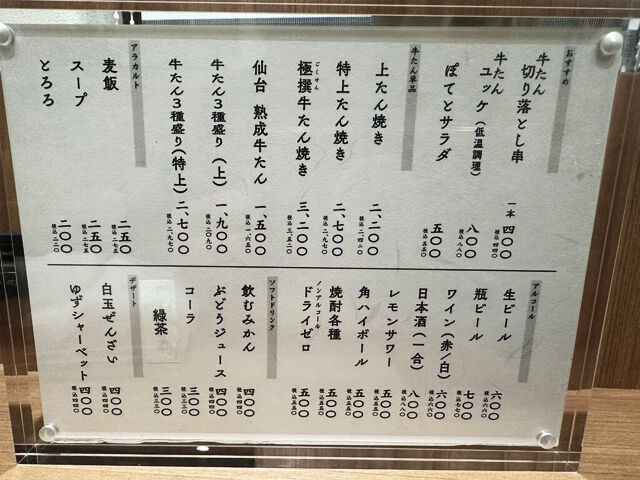 おすすめ
牛たん切り落とし串 一本 四〇〇 税込 四四〇
牛たんユッケ(低温調理) 八〇〇 税込 八八〇
ぽてとサラダ 五〇〇 税込 五五〇
牛たん単品
上たん焼き 二、二〇〇 税込 二、四二〇
特上たん焼き 二、七〇〇 税込 二、九七〇
極撰牛たん焼き ごくせん 三、二〇〇 税込 三、五二〇
仙台 熟成牛たん 一、五〇〇 税込 一、六五〇
牛たん3種盛り(上) 一、九〇〇 税込 二、〇九〇
牛たん3種盛り(特上) 二、七〇〇 税込 二、九七〇
アラカルト
麦飯 二五〇 税込 二七五
スープ 二五〇 税込 二七五
とろろ 二〇〇 税込 二二〇
アルコール
生ビール 六〇〇 税込 六六〇
瓶ビール 七〇〇 税込 七七〇
ワイン(赤/白) 六〇〇 税込 六六〇
日本酒(一合) 八〇〇 税込 八八〇
レモンサワー 五〇〇 税込 五五〇
角ハイボール 五〇〇 税込 五五〇
焼酎各種 五〇〇 税込 五五〇
ノンアルコール ドライゼロ 五〇〇 税込 五五〇
ソフトドリンク
飲むみかん 四〇〇 税込 四四〇
ぶどうジュース 四〇〇 税込 四四〇
コーラ 三〇〇 税込 三三〇
緑茶 三〇〇 税込 三三〇
デザート
白玉ぜんざい 四〇〇 税込 四四〇
ゆずシャーベット 四〇〇 税込 四四〇